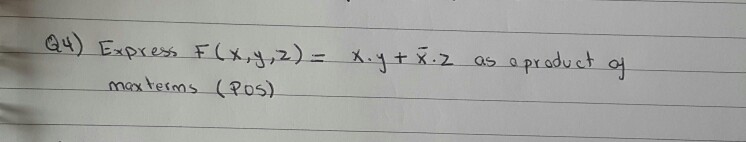 Q4) Express F(x,y,z) = x.y + x̄.z as a product of
maxterms (POS)